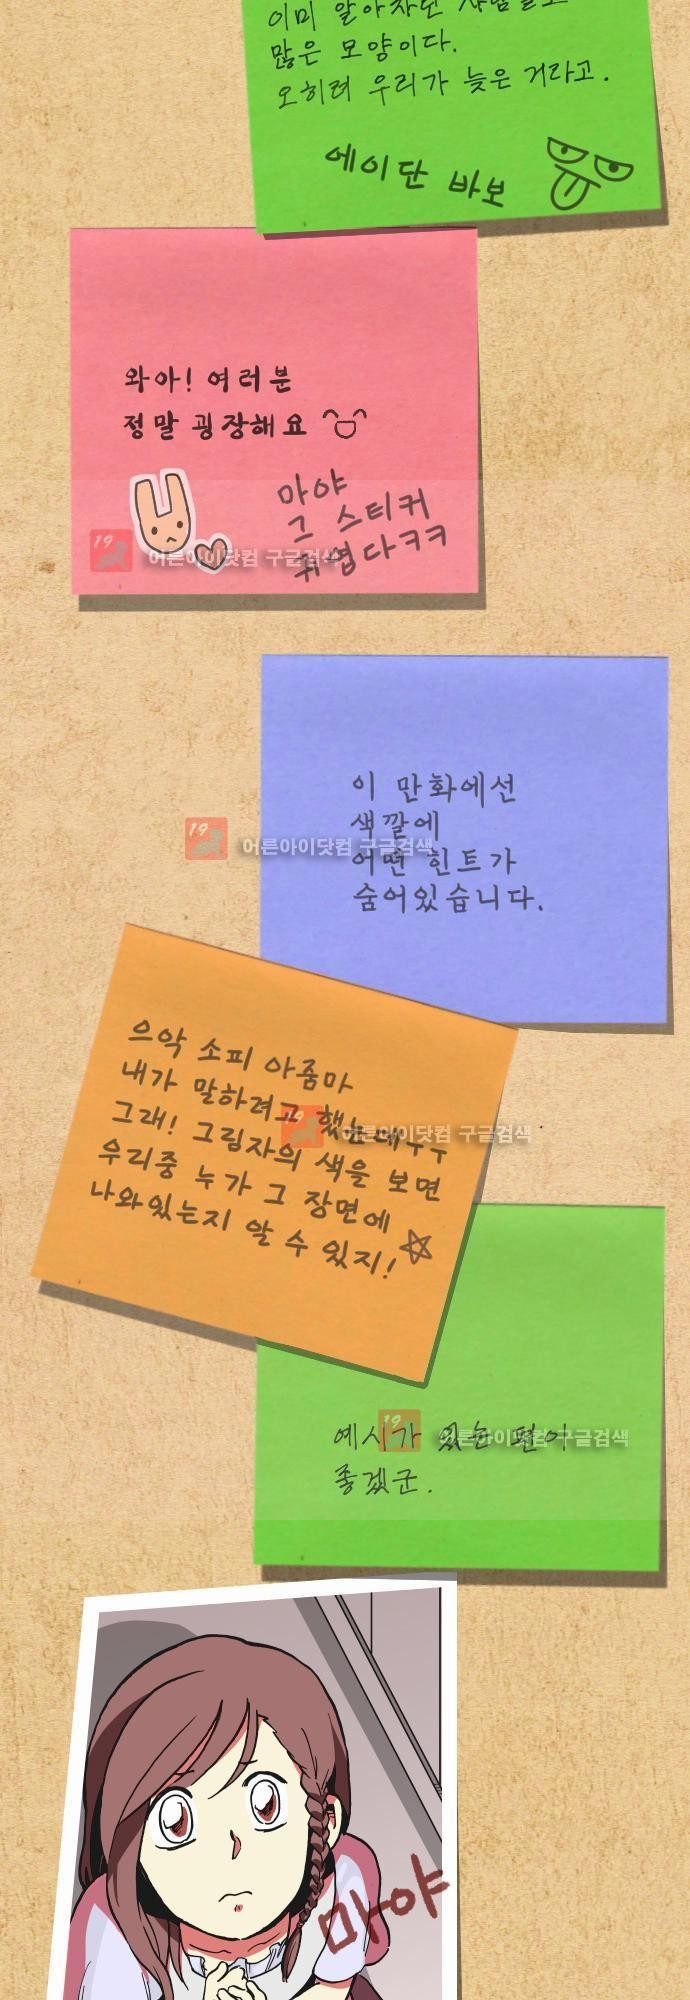 이미 알아차린 사람들도
많은 모양이다.
오히려 우리가 늦은 거라고.
에이단 바보
와아! 여러분
정말 굉장해요
마야
그 스티커
귀엽다ㅋㅋ
19 어른아이닷컴 구글검색
이 만화에선
색깔에
어떤 힌트가
숨어있습니다.
19 어른아이닷컴 구글검색
으악 소피 아줌마
내가 말하려고 했는데ㅜㅜ
그래! 그림자의 색을 보면
우리중 누가 그 장면에
나와있는지 알 수 있지!
19 어른아이닷컴 구글검색
예시가 있는 편이
좋겠군.
19 어른아이닷컴 구글검색
마야